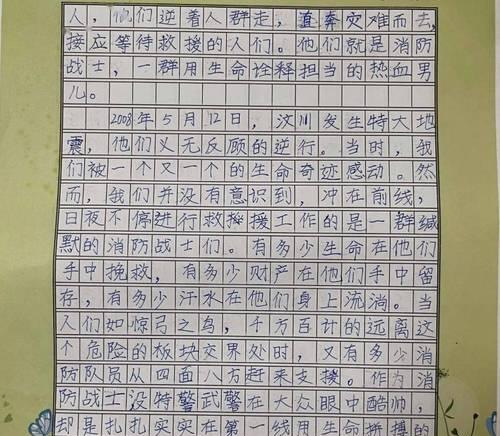 人，他们逆着人群走，直奔灾难而去，
接应等待救援的人们。他们就是消防
战士，一群用生命诠释担当的热血男
儿。
2008年5月12日，汶川发生特大地
震，他们义无反顾的逆行。当时，我
们被一个又一个的生命奇迹感动。然
而，我们并没有意识到，冲在前线，
日夜不停进行救援援工作的是一群缄
默的消防战士们。有多少生命在他们
手中挽救，有多少财产在他们手中留
存，有多少汗水在他们身上流淌。当
人们如惊弓之鸟，千方百计的远离这
个危险的板块交界处时，又有多少消
防队员从四面八方赶来支援。作为消
防战士没特警武警在大众眼中酷帅，
却是扎扎实实在第一线用生命拼搏的